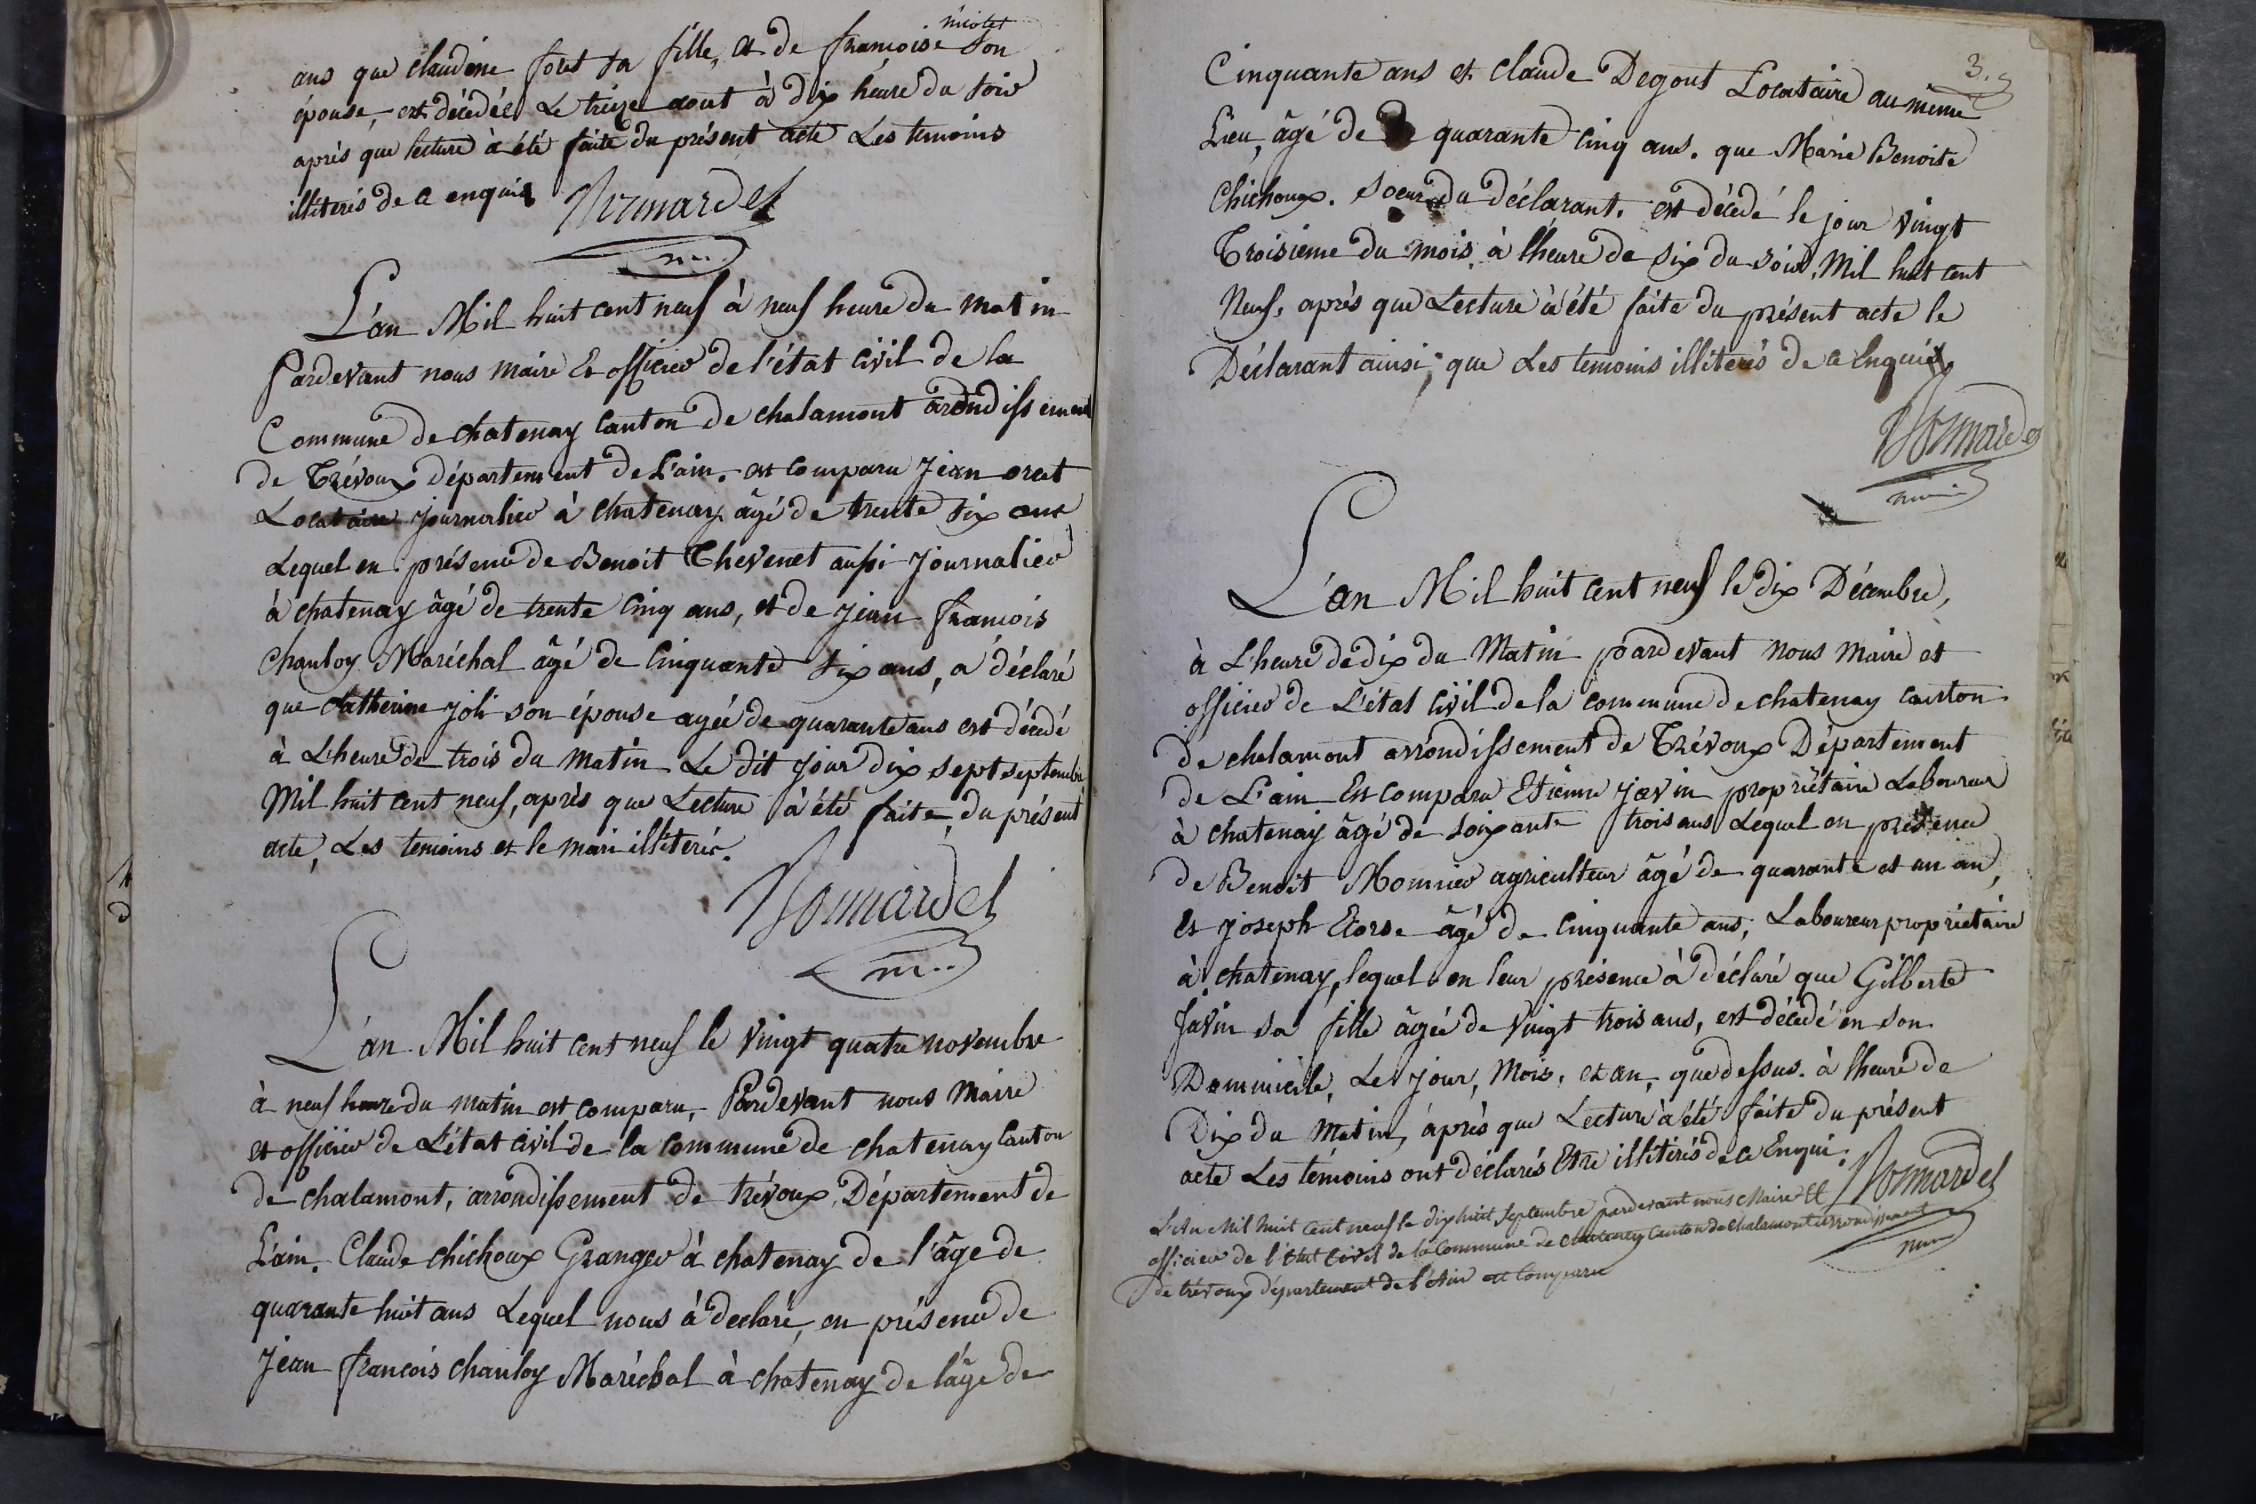 nicolet
ans que claudine foret sa fille, et de françoise son
épouse, est décédée Le treize aout à dix heure du soir
après que lecture à été faite du présent acte Les temoins
illiterés de ce enquis
L'an Mil huit cent neuf à neuf heure du matin
Pardevant nous maire Et officier de l'état civil de la
Commune de chatenay Canton de chalamont arondissement
de Trévoux Département de L'ain. est comparu Jean orat
Locataire journalier à chatenay âgé de trente six ans
Lequel en présence de Benoit Thevenet aussi Journalier
à chatenay âgé de trente cinq ans, et de Jean francois
chanloy Maréchal âgé de Cinquante six ans, a déclaré
que Catherine joli son épouse agée de quarante ans est décedé
à L'heure de trois du matin Le dit Jour dix sept septembre
Mil huit cent neuf, après que Lecture à été faite du présent
acte, Les temoins et le mari illiterés.
L'an Mil huit cent neuf le vingt quatre novembre
à neuf heure du matin est comparu, Pardevant nous Maire
et officier de L'état civil de la commune de chatenay Canton
de chalamont, arrondissement de trévoux, Département de
L'ain. Claude chichoux Granger à chatenay de l'âge de
quarante huit ans Lequel nous à declaré, en présence de
Jean francois chanloy Maréchal à chatenay de l'âge de
3.
Cinquante ans et Claude Degout Locataire au même
Lieu, âgé de quarante cinq ans. que Marie Benoite
Chichoux. soeur du déclarant. est décedé le jour vingt
Troisieme du mois, à l'heure de six du soir, Mil huit cent
Neuf, après que Lecture à été faite du présent acte le
Déclarant ainsi, que Les temoins illiterés de ce Enquis
L'an Mil huit cent neuf le dix Décembre,
à L'heure de dix du Matin pardevant nous maire et
officier de L'état civil de la commune de chatenay canton
de chalamont arrondissement de Trévoux Département
de L'ain Est comparu Etienne javin propriétaire Laboureur
à chatenay âgé de soixante trois ans Lequel en présence
de Benoit Monnier agriculteur âgé de quarante et un an,
et joseph âgé de cinquante ans, Laboureur propriétaire
à chatenay, lequel en leur présence à déclaré que Gilberte
Javin sa fille âgée de vingt trois ans, est décedé en son
Dommicile, Le jour, Mois, et an, que dessus. à l'heure de
Dix du Matin, après que Lecture à été faite du présent
acte Les témoins ont déclarés Etre illitérés de ce Enqui.
L'An Mil huit cent neuf le dix huit Septembre pardevant nous Maire Et
officier de l'état Civil de la Commune de chatenay Canton de Chalamont arrondissement
de trévoux département de l'Ain est Comparu